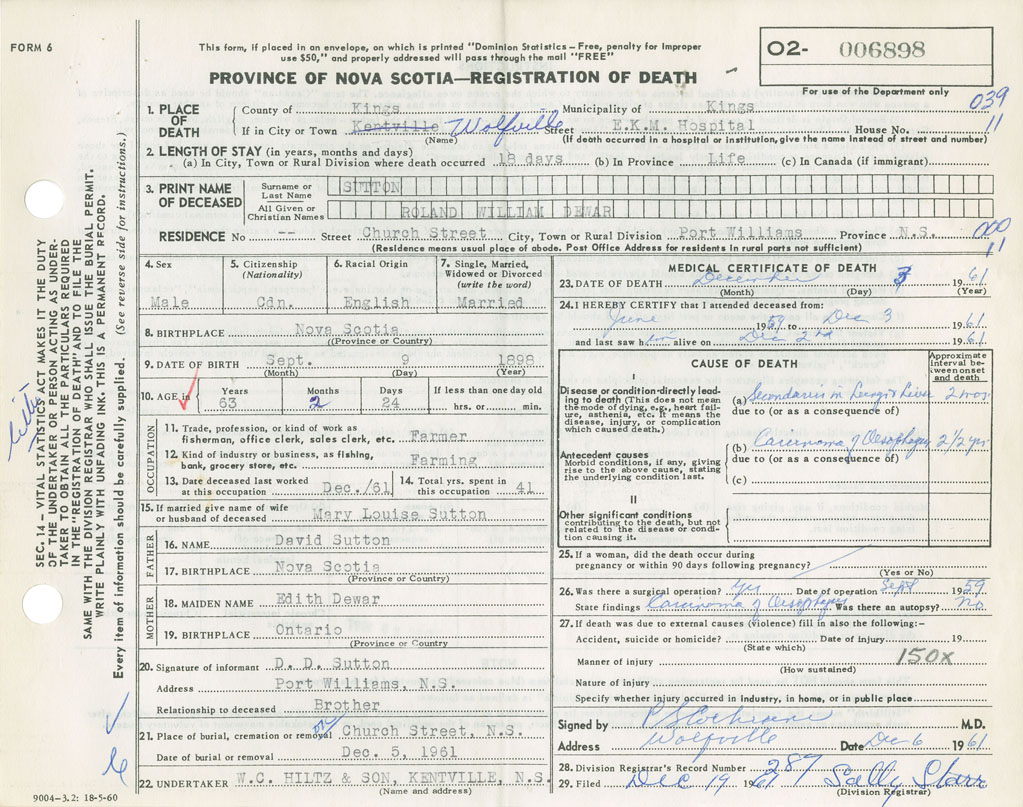 FORM 6
This form, if placed in an envelope, on which is printed "Dominion Statistics – Free, penalty for improper
use $50," and properly addressed will pass through the mail "FREE"
02- 006898
For use of the Department only
PROVINCE OF NOVA SCOTIA—REGISTRATION OF DEATH
039
11
1. PLACE OF DEATH
County of Kings Municipality of Kings
If in City or Town Kentville Wolfville Street E.K.M. Hospital House No.
(Name) (If death occurred in a hospital or institution, give the name instead of street and number)
2. LENGTH OF STAY (in years, months and days)
(a) In City, Town or Rural Division where death occurred 18 days (b) In Province Life (c) In Canada (if immigrant)
3. PRINT NAME OF DECEASED
Surname or Last Name SUTTON
All Given or Christian Names ROLAND WILLIAM DEWAR
RESIDENCE No -- Street Church Street City, Town or Rural Division Port Williams Province N.S.
(Residence means usual place of abode. Post Office Address for residents in rural parts not sufficient)
000
11
4. Sex
Male
5. Citizenship (Nationality)
Cdn.
6. Racial Origin
English
7. Single, Married, Widowed or Divorced (write the word)
Married
8. BIRTHPLACE Nova Scotia
(Province or Country)
9. DATE OF BIRTH Sept. 9 1898
(Month) (Day) (Year)
10. AGE in Years 63 Months 2 Days 24 If less than one day old hrs. or min.
OCCUPATION
11. Trade, profession, or kind of work as
fisherman, office clerk, sales clerk, etc. Farmer
12. Kind of industry or business, as fishing,
bank, grocery store, etc. Farming
13. Date deceased last worked at this occupation Dec./61
14. Total yrs. spent in this occupation 41
15. If married give name of wife
or husband of deceased Mary Louise Sutton
FATHER
16. NAME David Sutton
17. BIRTHPLACE Nova Scotia
(Province or Country)
MOTHER
18. MAIDEN NAME Edith Dewar
19. BIRTHPLACE Ontario
(Province or Country)
20. Signature of informant D. D. Sutton
Address Port Williams, N.S.
Relationship to deceased Brother
21. Place of burial, cremation or removal Church Street, N.S.
Date of burial or removal Dec. 5, 1961
22. UNDERTAKER W.C. HILTZ & SON, KENTVILLE, N.S.
(Name and address)
MEDICAL CERTIFICATE OF DEATH
23. DATE OF DEATH December 3 1961
(Month) (Day) (Year)
24. I HEREBY CERTIFY that I attended deceased from:
June 1959 to Dec 3 1961
and last saw him alive on Dec 2nd 1961
CAUSE OF DEATH
Approximate interval between onset and death
I
Disease or condition directly leading to death (This does not mean the mode of dying, e.g., heart failure, asthenia, etc. It means the disease, injury, or complication which caused death.)
(a) Secondaries in Lungs & Liver 2 mos.
due to (or as a consequence of)
(b) Carcinoma of Oesophagus 2 1/2 yrs
due to (or as a consequence of)
(c)
Antecedent causes
Morbid conditions, if any, giving rise to the above cause, stating the underlying condition last.
II
Other significant conditions
contributing to the death, but not related to the disease or condition causing it.
25. If a woman, did the death occur during
pregnancy or within 90 days following pregnancy?
(Yes or No)
26. Was there a surgical operation? Yes Date of operation Sept 1959
State findings Carcinoma of Oesophagus Was there an autopsy? No
27. If death was due to external causes (violence) fill in also the following:–
Accident, suicide or homicide? Date of injury 19
(State which)
Manner of injury 150X
(How sustained)
Nature of injury
Specify whether injury occurred in industry, in home, or in public place
Signed by P S Cochrane M.D.
Address Wolfville Date Dec 6 1961
28. Division Registrar's Record Number 287
29. Filed Dec 19 1961 Sally Starr
(Division Registrar)
SEC. 14 – VITAL STATISTICS ACT MAKES IT THE DUTY
OF THE UNDERTAKER OR PERSON ACTING AS UNDER-
TAKER TO OBTAIN ALL THE PARTICULARS REQUIRED
IN THE "REGISTRATION OF DEATH" AND TO FILE THE
SAME WITH THE DIVISION REGISTRAR WHO SHALL ISSUE THE BURIAL PERMIT.
WRITE PLAINLY WITH UNFADING INK. THIS IS A PERMANENT RECORD.
Every item of information should be carefully supplied. (See reverse side for instructions.)
9004-3.2: 18-5-60